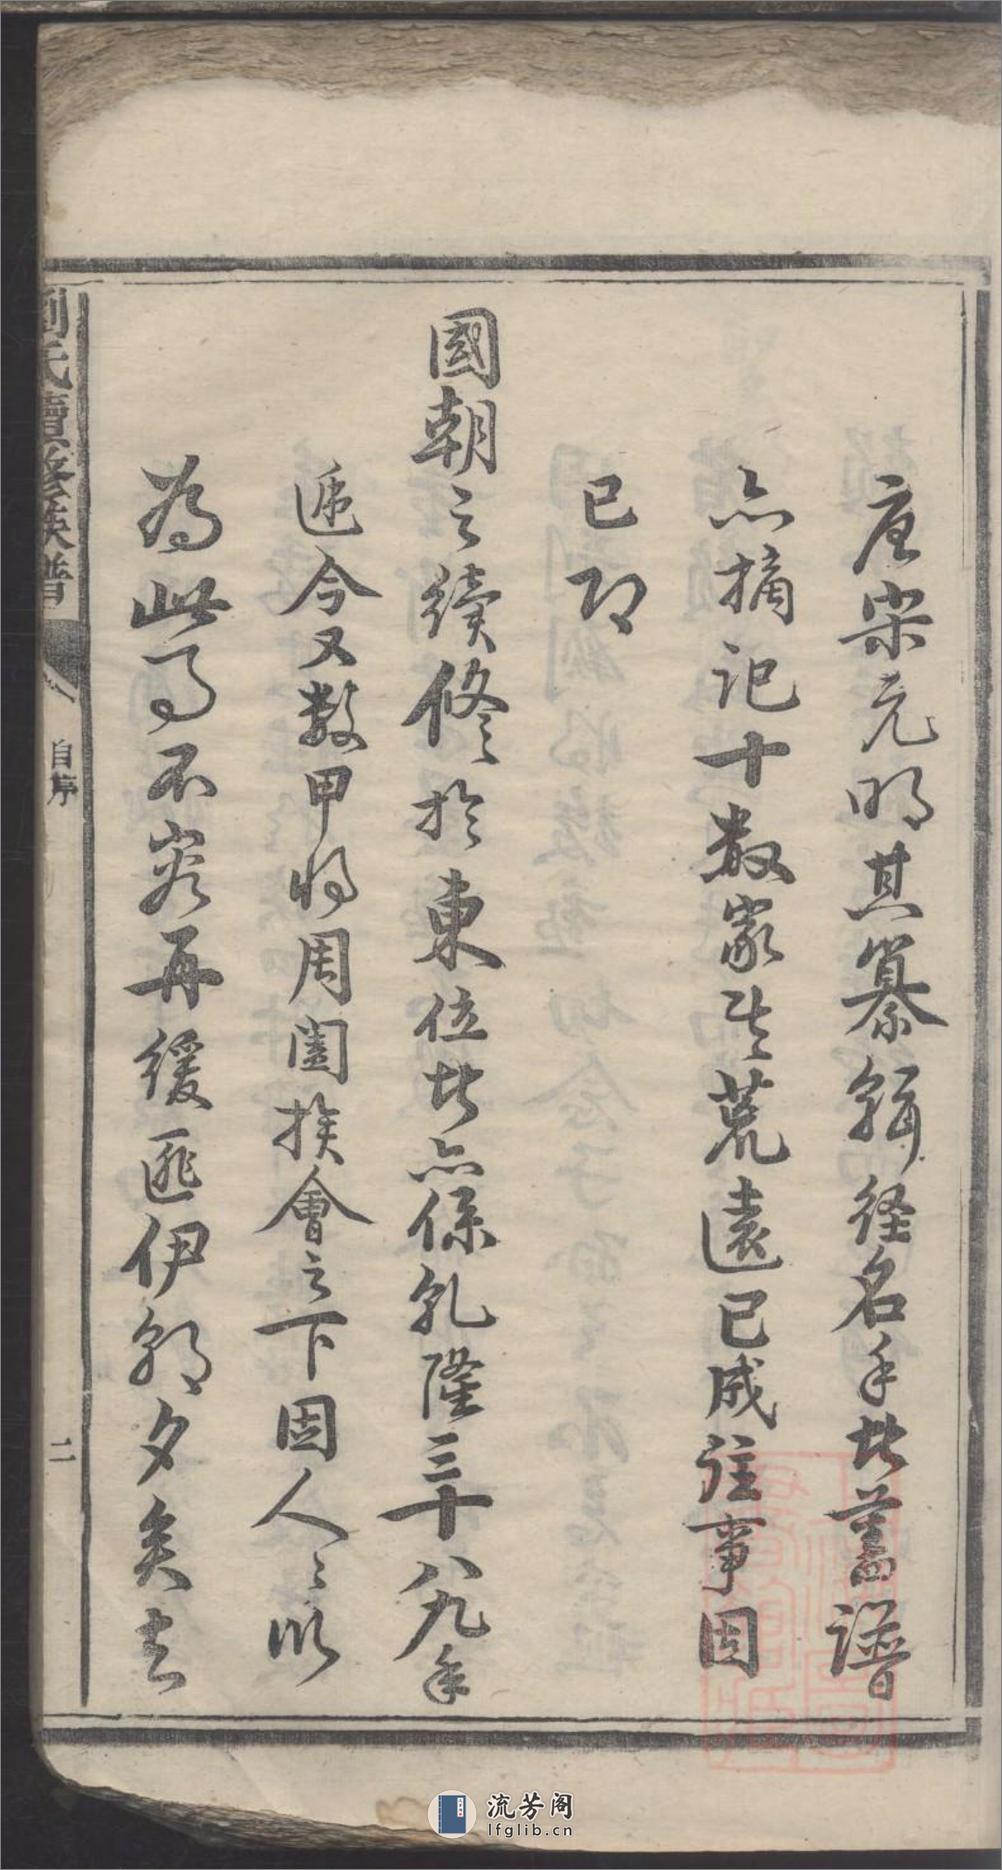 唐宋元明其纂輯經名手其舊譜
亦摘記十數家然荒遠已成往事固
已即
國朝之續修於東位者亦係乾隆三十八九年
遞今又數甲將周闔族會之下固人人以
為此事不容再緩匪伊朝夕矣去
劉氏續修族譜
自序
二
流芳阁
lfglib.cn